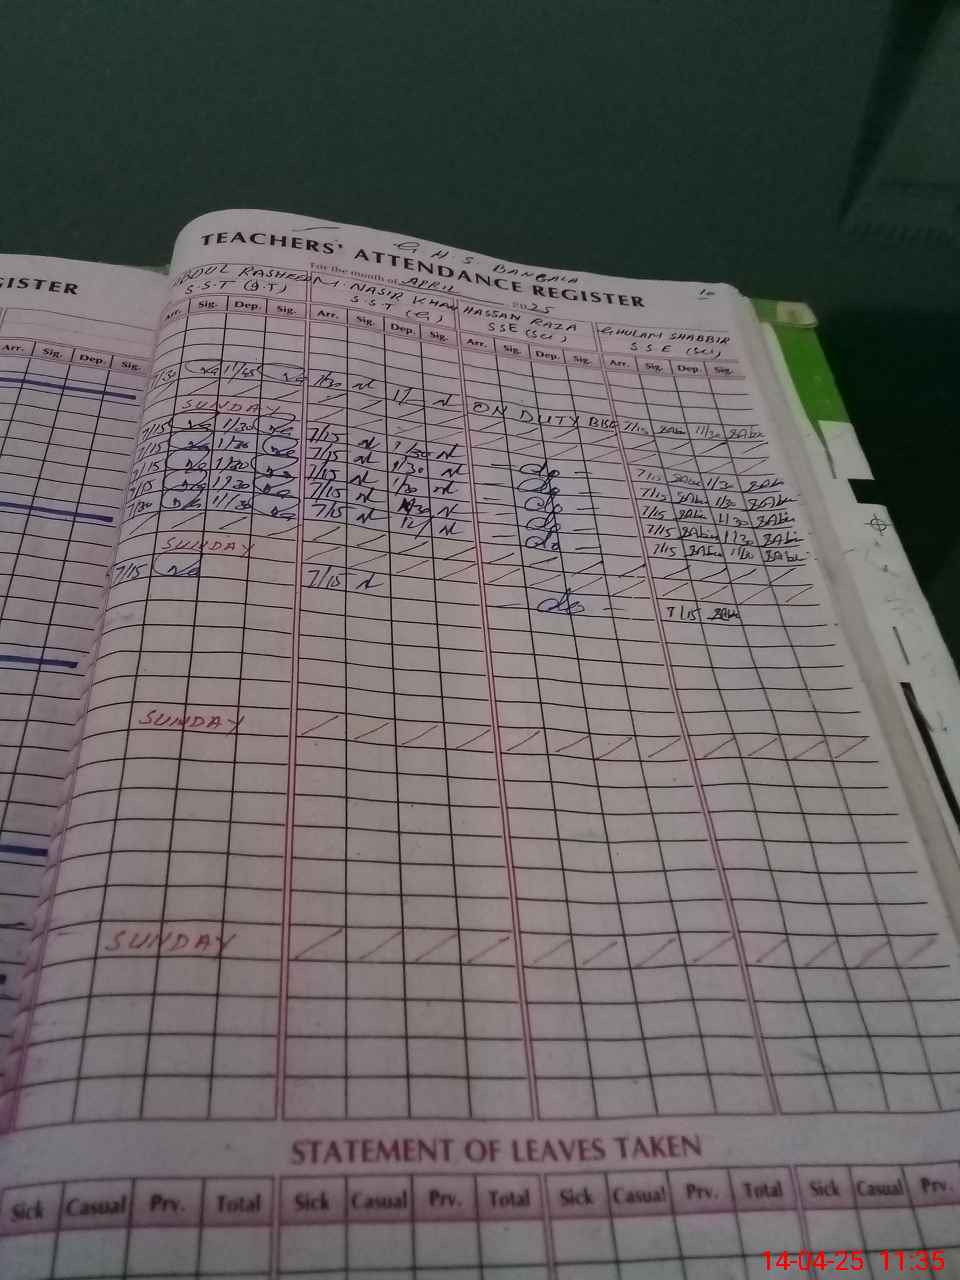 G.H.S. BANGALA
TEACHERS' ATTENDANCE REGISTER
GISTER
For the month of APRIL 2025
10
ABDUL RASHEED M. NASIR KHAN HASSAN RAZA GHULAM SHABBIR
S.S.T (G.T) S.S.T (G) SSE (Sci) S S E (Sci)
Arr. Sig. Dep. Sig. Arr. Sig. Dep. Sig. Arr. Sig. Dep. Sig. Arr. Sig. Dep. Sig.
Arr. Sig. Dep. Sig.
7/30 11/45 7/30 12/ ON DUTY BISE 7/15 11/30
SUNDAY
7/15 1/30 7/15 1/30 do 7/15 1/30
7/15 1/30 7/15 1/30 do 7/15 1/30
7/15 1/30 7/15 1/30 do 7/15 1/30
7/15 1/30 7/15 1/30 do 7/15 1/30
7/30 11/30 7/15 12/ do 7/15 11/30
SUNDAY
7/15 7/15 do 7/15
SUNDAY
SUNDAY
STATEMENT OF LEAVES TAKEN
Sick Casual Prv. Total Sick Casual Prv. Total Sick Casual Prv. Total Sick Casual Prv.
14-04-25 11:35